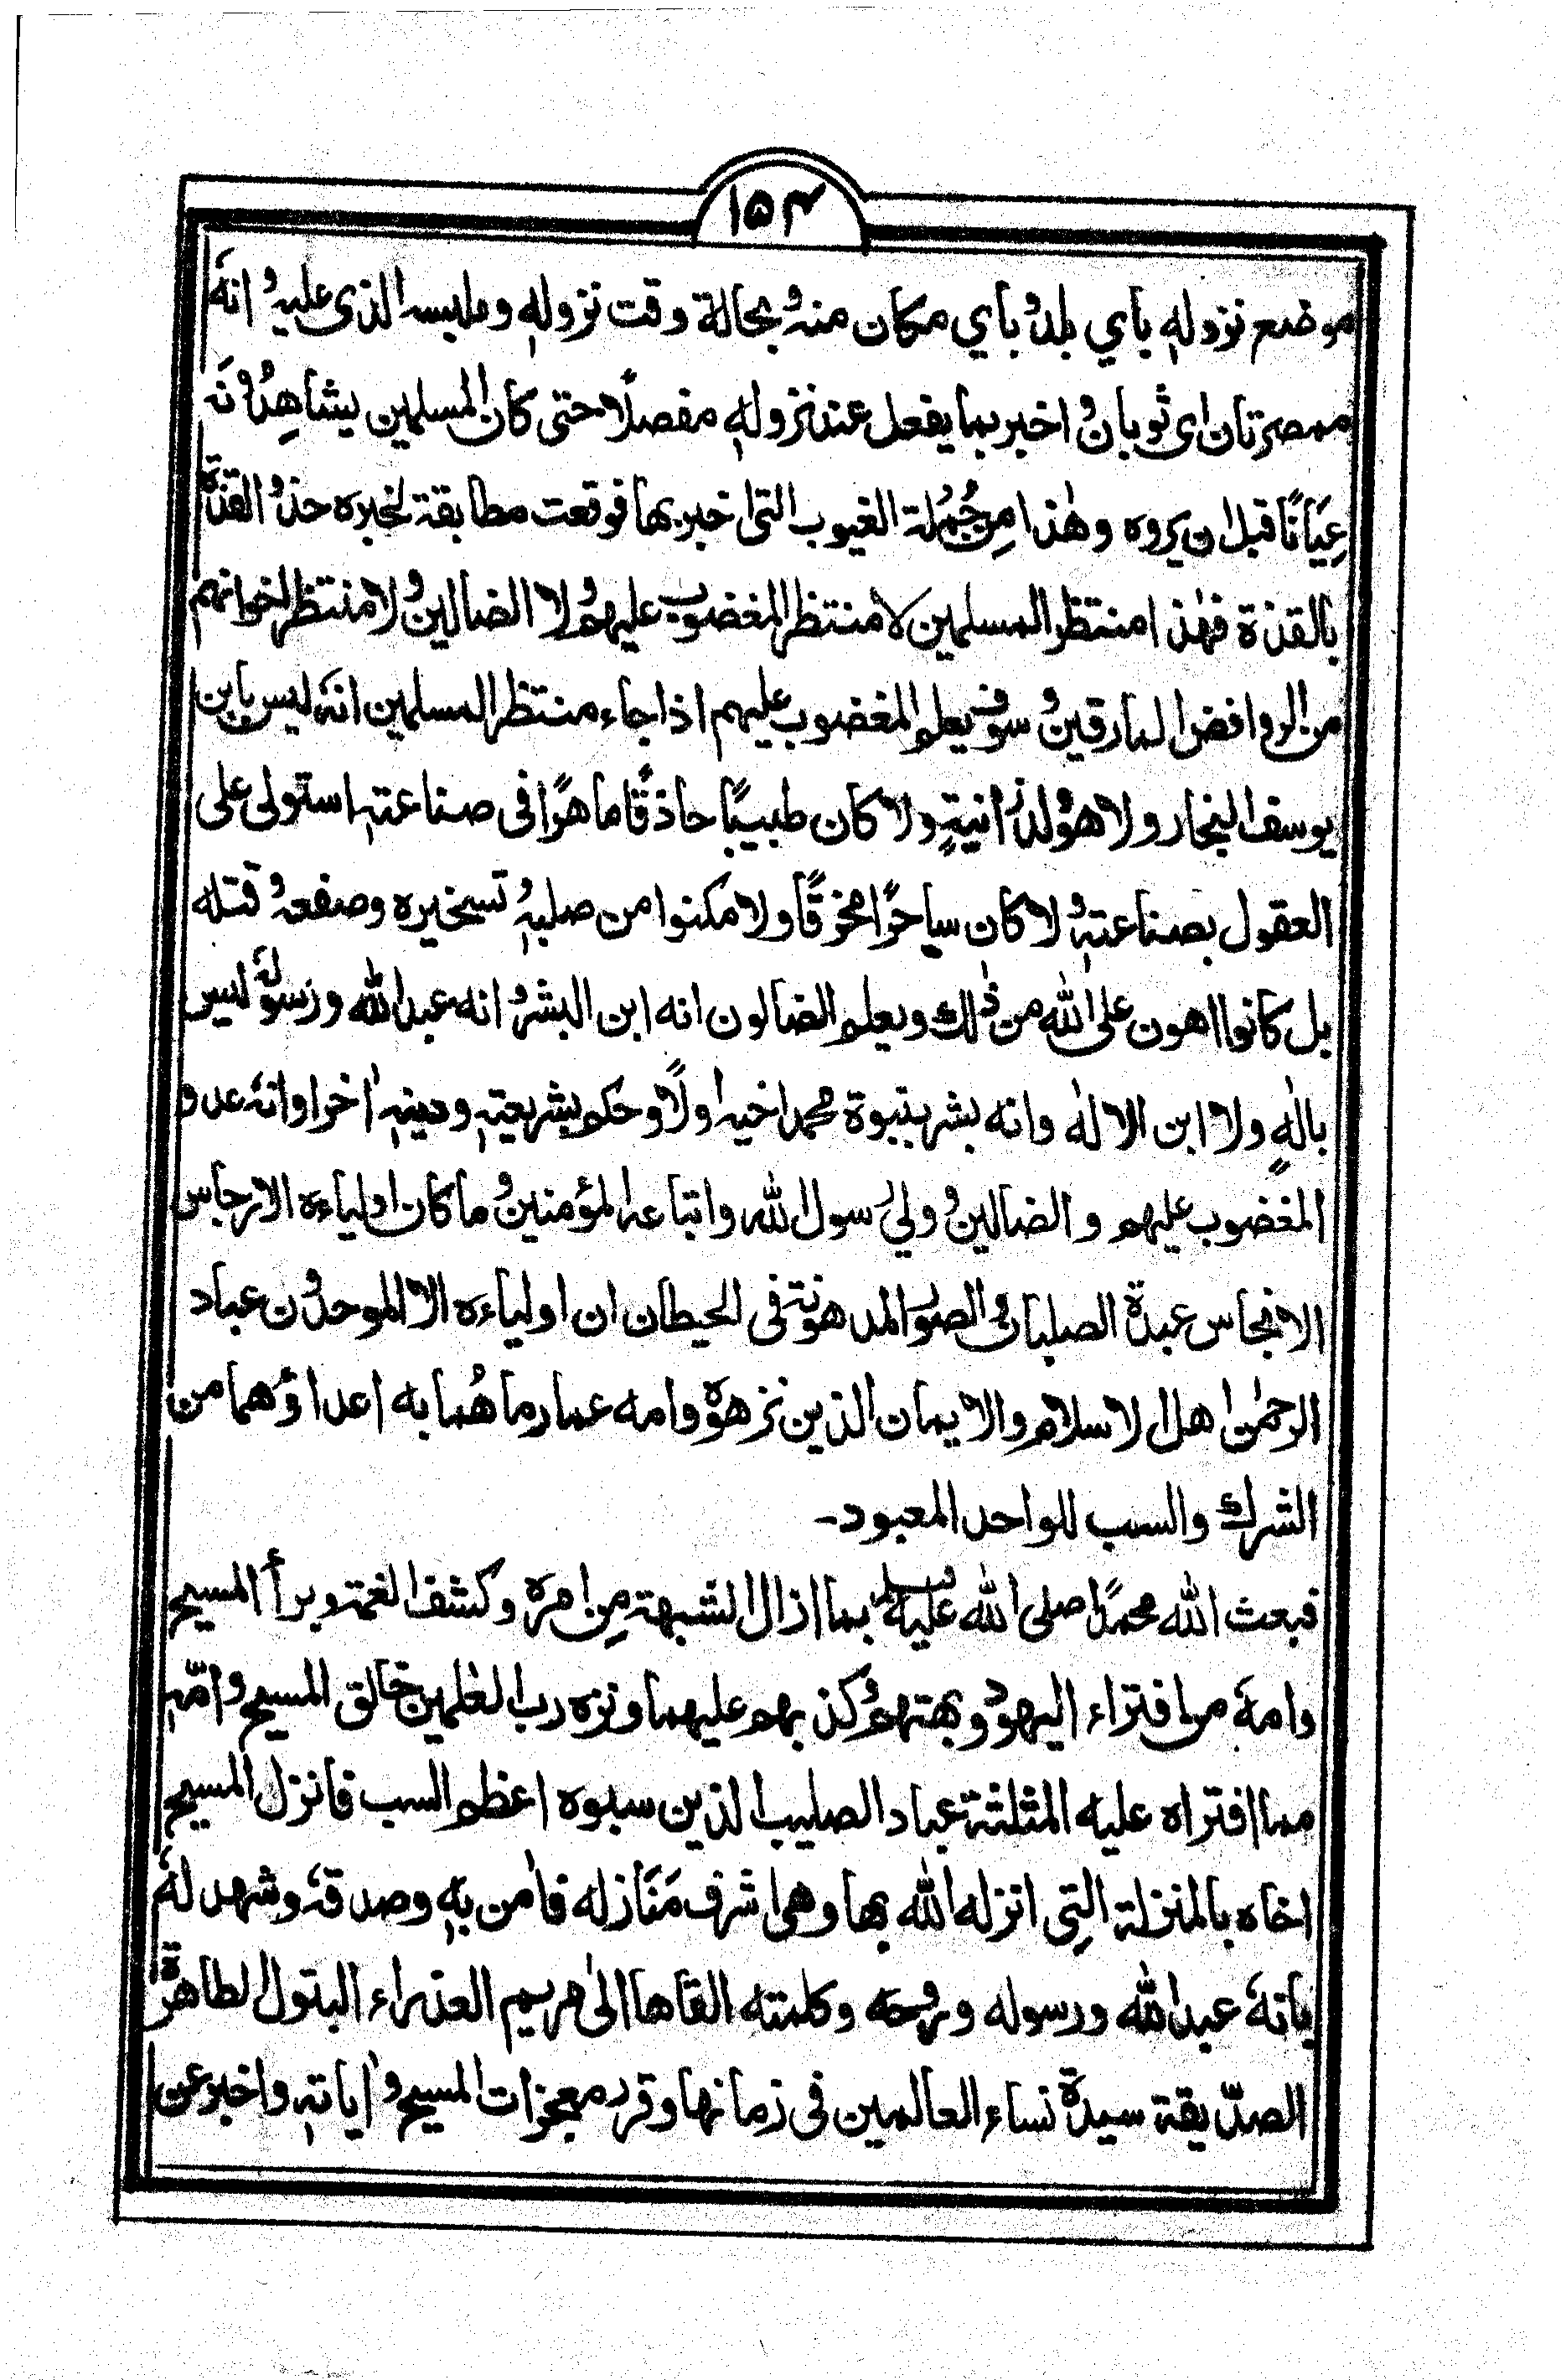 ۱۵۴
موضع نزولہٖ بأي بلد وبأي مکان منہ وبحالة وقت نزولہٖ وملبسہ الذی علیہ وانہٗ
ممصرتان ای ثوبان واخبر بما یفعل عند نزولہٖ مفصلًا حتی کان المسلمین یشاھِدُونَہ
عِیَانًا قبل ان یروہ وھٰذا مِن جُمْلة الغیوب التی اخبر بھا فوقعت مطابقة لخبرہ حذو القذة
بالقذة فھٰذا منتظر المسلمین لا منتظر المغضوب علیھم ولا الضالین ولا منتظر اخوانھم
من الروافض المارقین وسوف یعلم المغضوب علیھم اذا جاء منتظر المسلمین انہٗ لیس بابن
یوسف النجار ولا ھو ولد زانیةٍ ولا کان طبیبًا حاذقًا ماھرًا فی صناعتہٖ استولی علی
العقول بصناعتہٖ ولا کان ساحرًا مخرقًا ولا مکنوا من صلبہٖ وتسخیرہ وصفعہ وقتلہ
بل کانوا اھون علی اللّٰہ من ذٰلك ویعلم الضالون انہ ابن البشر وانہ عبد اللّٰہ ورسولہٗ لیس
بالٰہٍ ولا ابن الالٰہ وانہ بشر بنبوة محمد اخیہ اولًا وحکم بشریعتہٖ ودینہٖ اٰخرا وانہٗ عدو
المغضوب علیھم والضالین وولي رسول اللّٰہ واتباعہ المؤمنین وما کان اولیاءہ الارجاس
الانجاس عبدة الصلبان والصور المدھونة فی الحیطان ان اولیاءہ الا الموحدون عباد
الرحمٰن اھل الاسلام والایمان الذین نزھوہ وامہ عما رماھُما بہ اعداؤھما من
الشرك والسب للواحد المعبود۔
فبعث اللّٰہ محمدًا صلی اللّٰہ علیہ وسلم بما ازال الشبھة مِن امرہ وکشف الغمة وبرأ المسیح
وامہٗ من افتراء الیھود وبھتھم وکذبھم علیھما ونزہ رب العٰلمین خالق المسیح وامّہٖ
مما افتراہ علیہ المثلثة عباد الصلیب الذین سبوہ اعظم السب فانزل المسیح
اخاہ بالمنزلة التِی انزلہ اللّٰہ بھا وھی اشرف مَنَازلہ فاٰمن بہٖ وصدقہٗ وشھد لہٗ
بانہٗ عبد اللّٰہ ورسولہ وروحہ وکلمتہ القاھا الیٰ مریم العذراء البتول الطاھرة
الصدّیقة سیدة نساء العالمین فی زمانھا وقرر معجزات المسیح واٰیاتہٖ واخبر عن